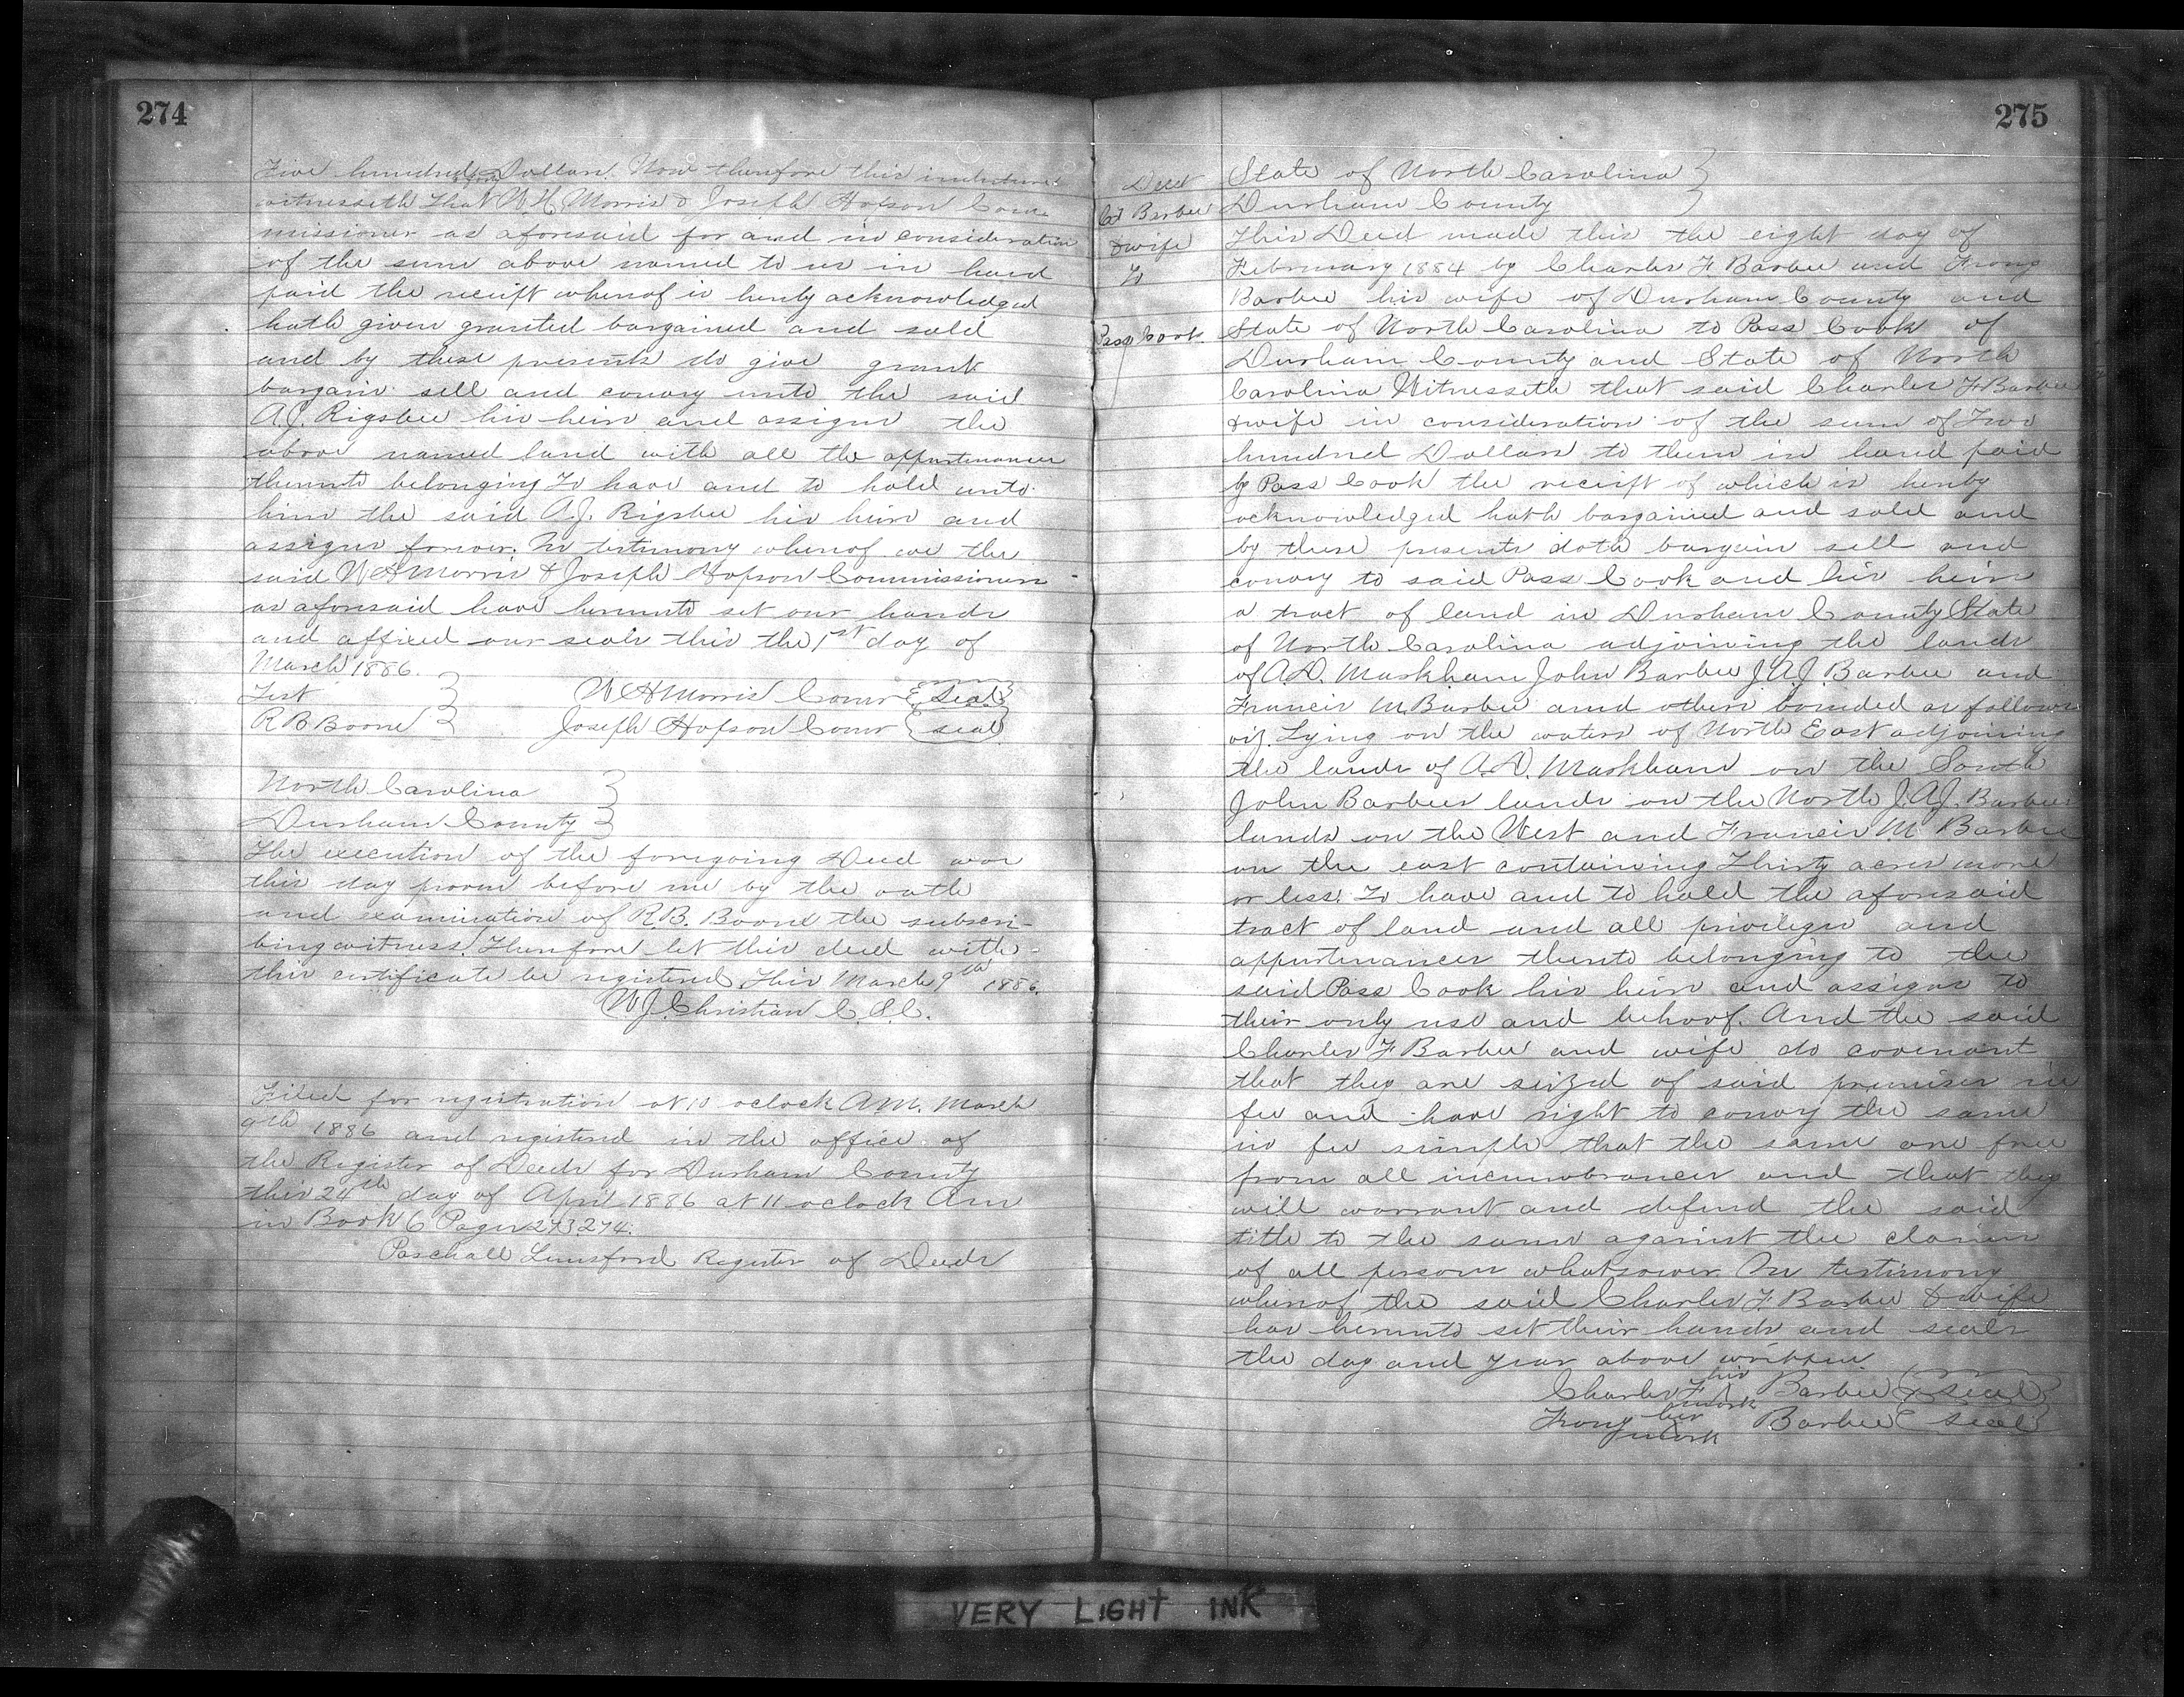 274
Five hundred Dollars. Now therefore this indenture
witnesseth that W.H. Morris & Joseph Hopson Com-
missioner as aforesaid for and in consideration
of the sum above named to us in hand
paid the receipt whereof is hereby acknowledged
hath given granted bargained and sold
and by these presents do give grant
bargain sell and convey unto the said
A.J. Rigsbee his heirs and assigns the
above named land with all the appurtenances
thereunto belonging To have and to hold unto
him the said A.J. Rigsbee his heirs and
assigns forever. In testimony whereof we the
said W H Morris & Joseph Hopson Commissioners
as aforesaid have hereunto set our hands
and affixed our seals this the 1st day of
March 1886.
Test W H Morris Comr Seal
R B Boone Joseph Hopson Comr seal
North Carolina
Durham County
The execution of the foregoing Deed was
this day proven before me by the oath
and examination of R.B. Boone the subscri-
bing witness. Therefore let this deed with
this certificate be registered. This March 9th 1886.
W.J. Christian C.S.C.
Filed for registration at 10 oclock A.M. March
9th 1886 and registered in the office of
the Register of Deeds for Durham County
this 24th day of April 1886 at 11 oclock Am
in Book 6 Pages 273.274.
Paschall Lunsford Register of Deeds
275
Deed
Barbee
& wife
To
Pass Cook
State of North Carolina
Durham County
This Deed made this the eight day of
February 1884 by Charles F Barbee and
Barbee his wife of Durham County and
State of North Carolina to Pass Cook of
Durham County and State of North
Carolina Witnesseth that said Charles F Barbee
& wife in consideration of the sum of Two
hundred Dollars to them in hand paid
by Pass Cook the receipt of which is hereby
acknowledged hath bargained and sold and
by these presents doth bargain sell and
convey to said Pass Cook and his heirs
a tract of land in Durham County State
of North Carolina adjoining the lands
of A.D. Markham John Barbee J.A.J. Barbee and
Francis M. Barbee and others bounded as follows
viz. Lying on the waters of North East adjoining
the lands of A.D. Markham on the South
John Barbees lands on the North J.A.J. Barbees
lands on the West and Francis M. Barbee
on the east containing Thirty acres more
or less. To have and to hold the aforesaid
tract of land and all privileges and
appurtenances thereto belonging to the
said Pass Cook his heirs and assigns to
their only use and behoof. And the said
Charles F Barbee and wife do covenant
that they are seized of said premises in
fee and have right to convey the same
in fee simple that the same are free
from all incumbrances and that they
will warrant and defend the said
title to the same against the claims
of all persons whatsoever. In testimony
whereof the said Charles F. Barbee & wife
has hereunto set their hands and seals
the day and year above written
Charles F his mark Barbee seal
her mark Barbee seal
VERY LIGHT INK